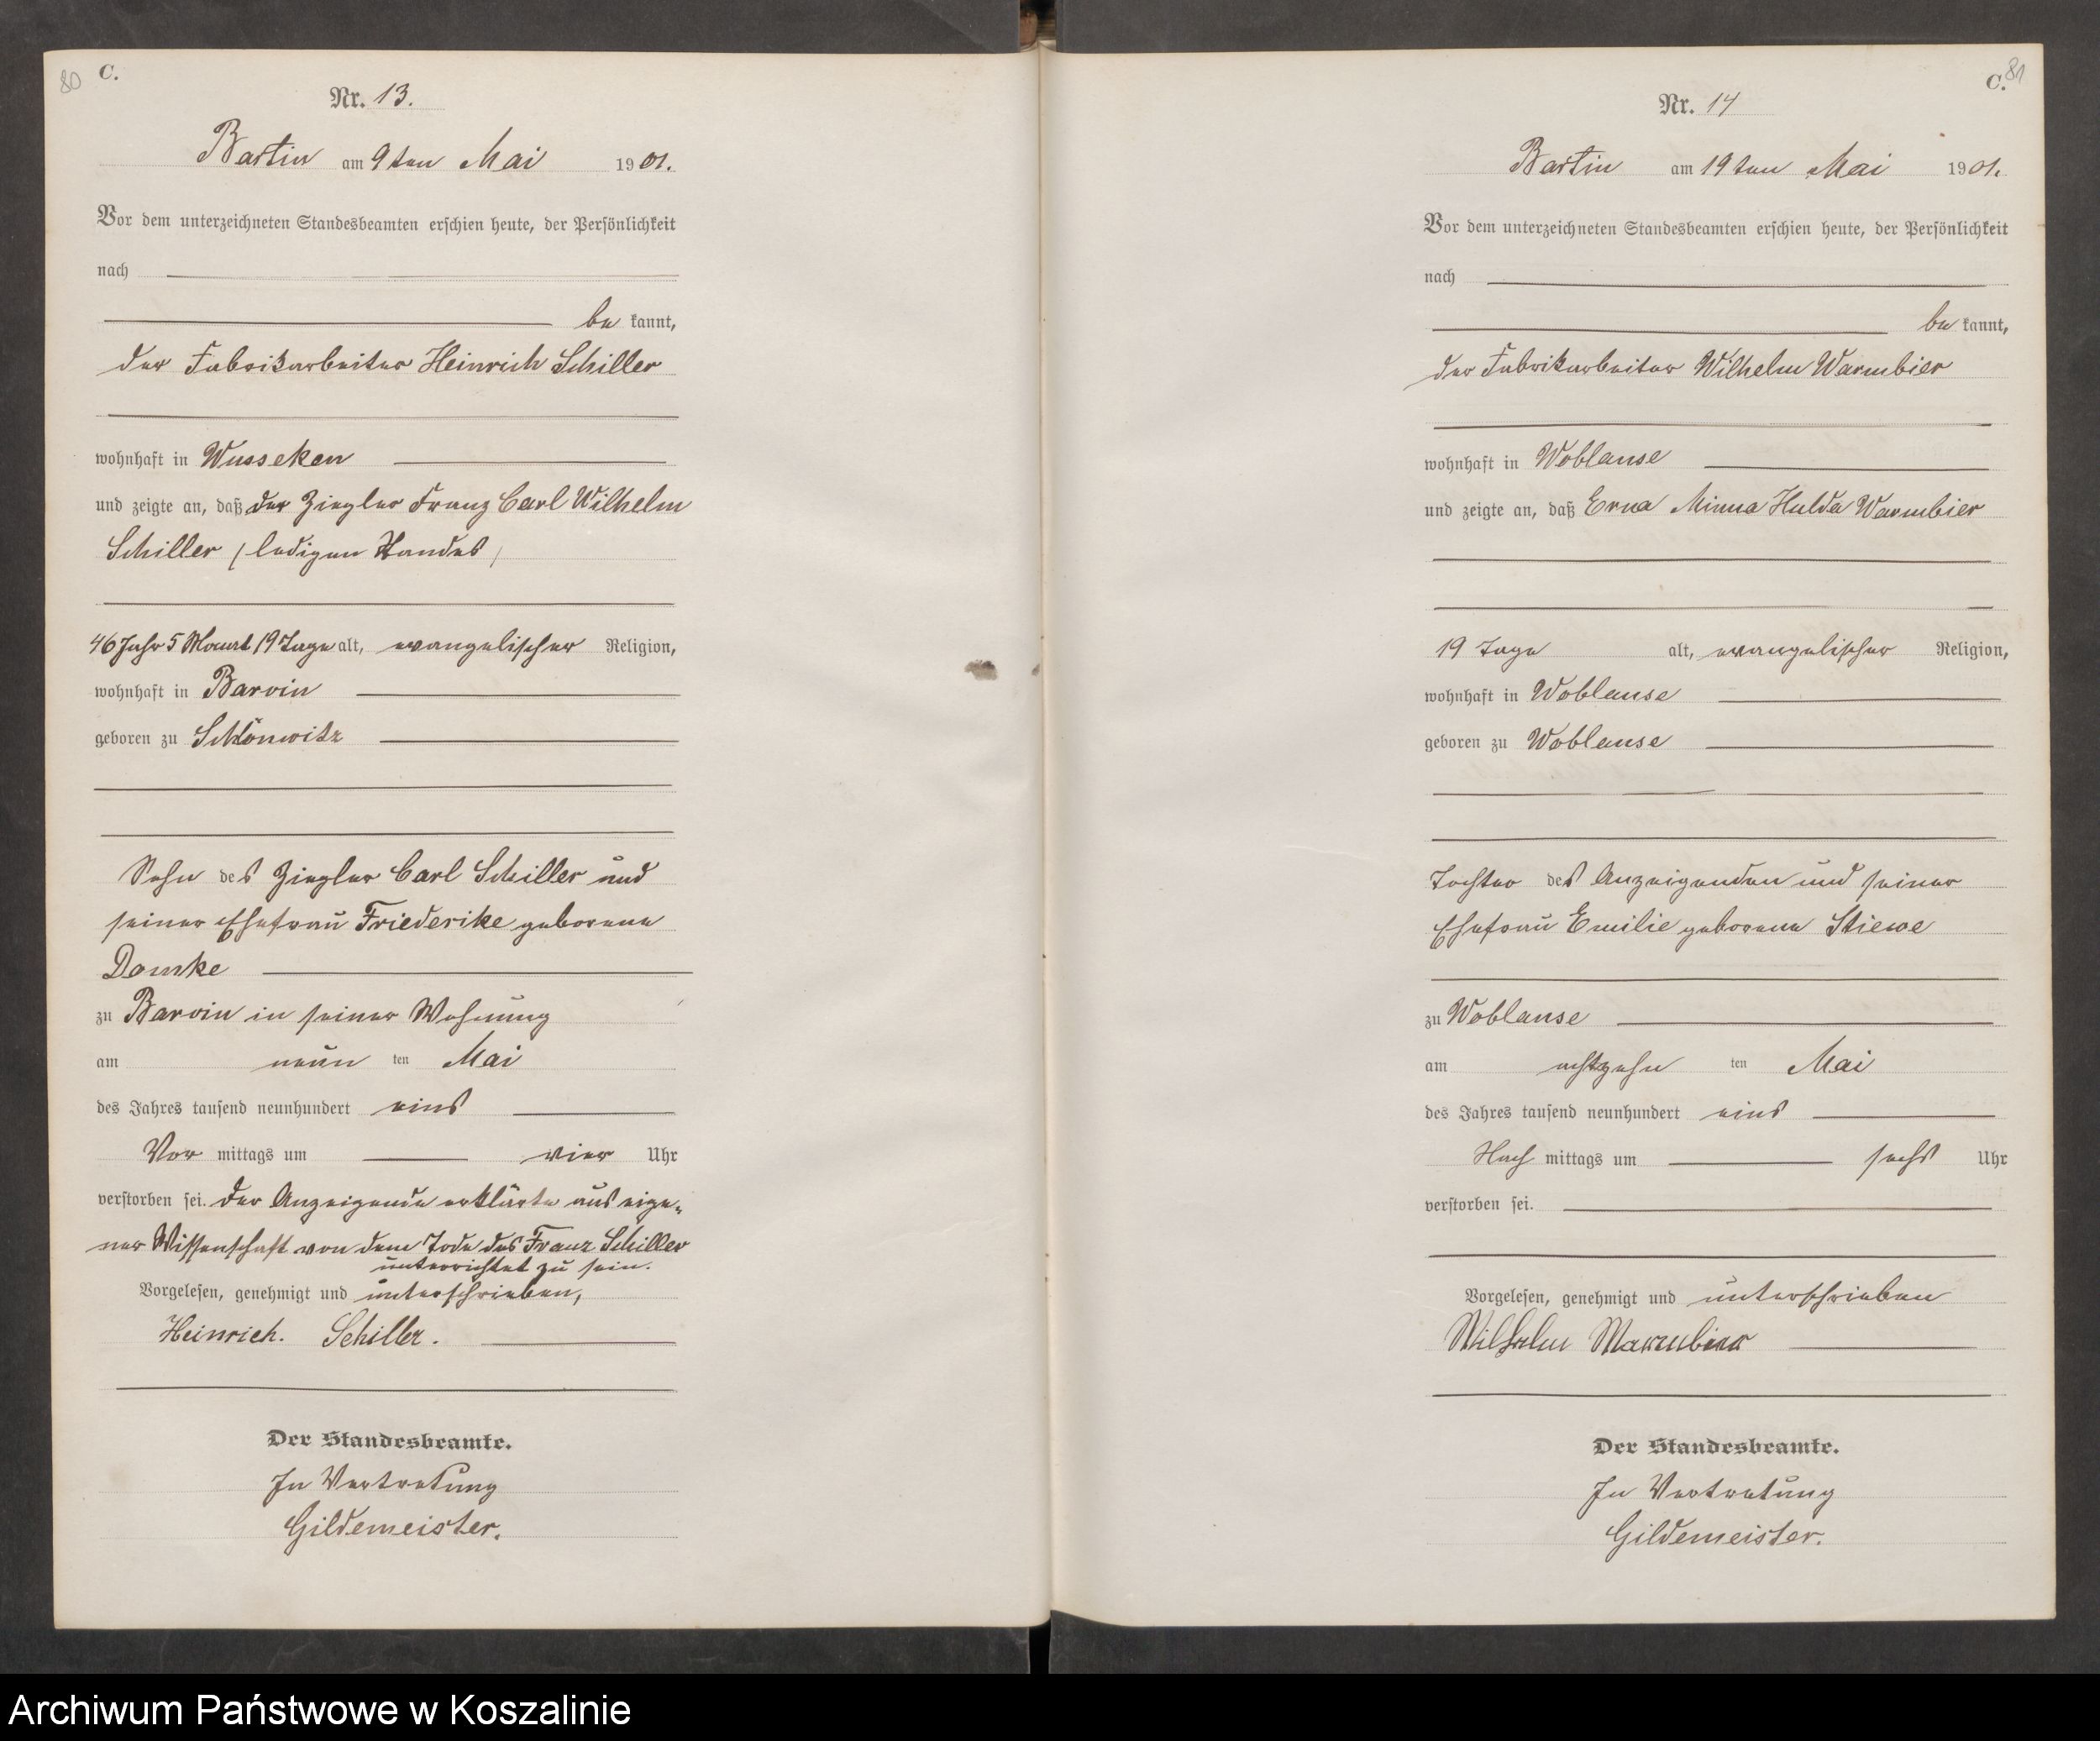 80
C.
Nr. 13.
Bartin am 9ten Mai 1901.
Vor dem unterzeichneten Standesbeamten erschien heute, der Persönlichkeit
nach
be kannt,
der Fabrikarbeiter Heinrich Schiller
wohnhaft in Wusseken
und zeigte an, daß der Ziegler Franz Carl Wilhelm
Schiller (ledigen Standes)
46 Jahr 5 Monat 19 Tage alt, evangelischer Religion,
wohnhaft in Barvin
geboren zu Schönwitz
Sohn des Ziegler Carl Schiller und
seiner Ehefrau Friederike geborene
Domke
zu Barvin in seiner Wohnung
am neun ten Mai
des Jahres tausend neunhundert eins
Vor mittags um vier Uhr
verstorben sei. Der Anzeigende erklärte aus eige-
ner Wissenschaft von dem Tode des Franz Schiller
unterrichtet zu sein.
Vorgelesen, genehmigt und unterschrieben,
Heinrich. Schiller.
Der Standesbeamte.
In Vertretung
Gildemeister.
C. 81
Nr. 14
Bartin am 19ten Mai 1901.
Vor dem unterzeichneten Standesbeamten erschien heute, der Persönlichkeit
nach
be kannt,
der Fabrikarbeiter Wilhelm Warmbier
wohnhaft in Woblanse
und zeigte an, daß Erna Minna Hulda Warmbier
19 Tage alt, evangelischer Religion,
wohnhaft in Woblanse
geboren zu Woblanse
Tochter des Anzeigenden und seiner
Ehefrau Emilie geborene Stiewe
zu Woblanse
am achtzehn ten Mai
des Jahres tausend neunhundert eins
Nach mittags um sechs Uhr
verstorben sei.
Vorgelesen, genehmigt und unterschrieben
Wilhelm Warmbier
Der Standesbeamte.
In Vertretung
Gildemeister.
Archiwum Państwowe w Koszalinie